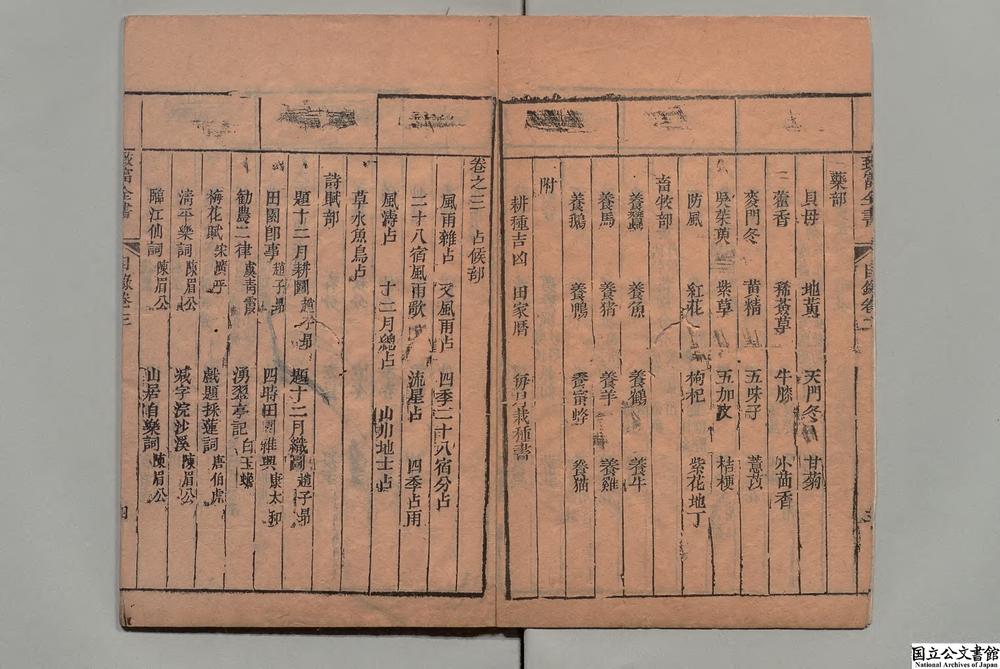 致富全書 目錄卷二
藥部
貝母 地黃 天門冬 甘菊
藿香 稀薟草 牛膝 小茴香
麥門冬 黃精 五味子 薏苡
吳茱萸 紫草 五加皮 桔梗
防風 紅花 枸杞 紫花地丁
畜牧部
養蠶 養魚 養鶴 養牛
養馬 養猪 養羊 養雞
養鵝 養鴨 養蜜蜂 養猫
附
耕種吉凶 田家曆 每月栽種書
卷之三 占候部
風雨雜占 又風雨占 四季二十八宿分占
二十八宿風雨歌 流星占 四季占雨
風濤占 十二月總占 山川地土占
草木魚鳥占
詩賦部
題十二月耕圖 趙子昻 題十二月織圖 趙子昻
田園卽事 趙子昻 四時田園雜興 康太和
勧農二律 虞靑霞 湧翠亭記 白玉蟾
梅花賦 宋廣平 戲題採蓮詞 唐伯虎
淸平樂詞 陳眉公 减字浣沙溪 陳眉公
臨江仙詞 陳眉公 山居自樂詞 陳眉公
致富全書 目錄卷三 四
国立公文書館
National Archives of Japan